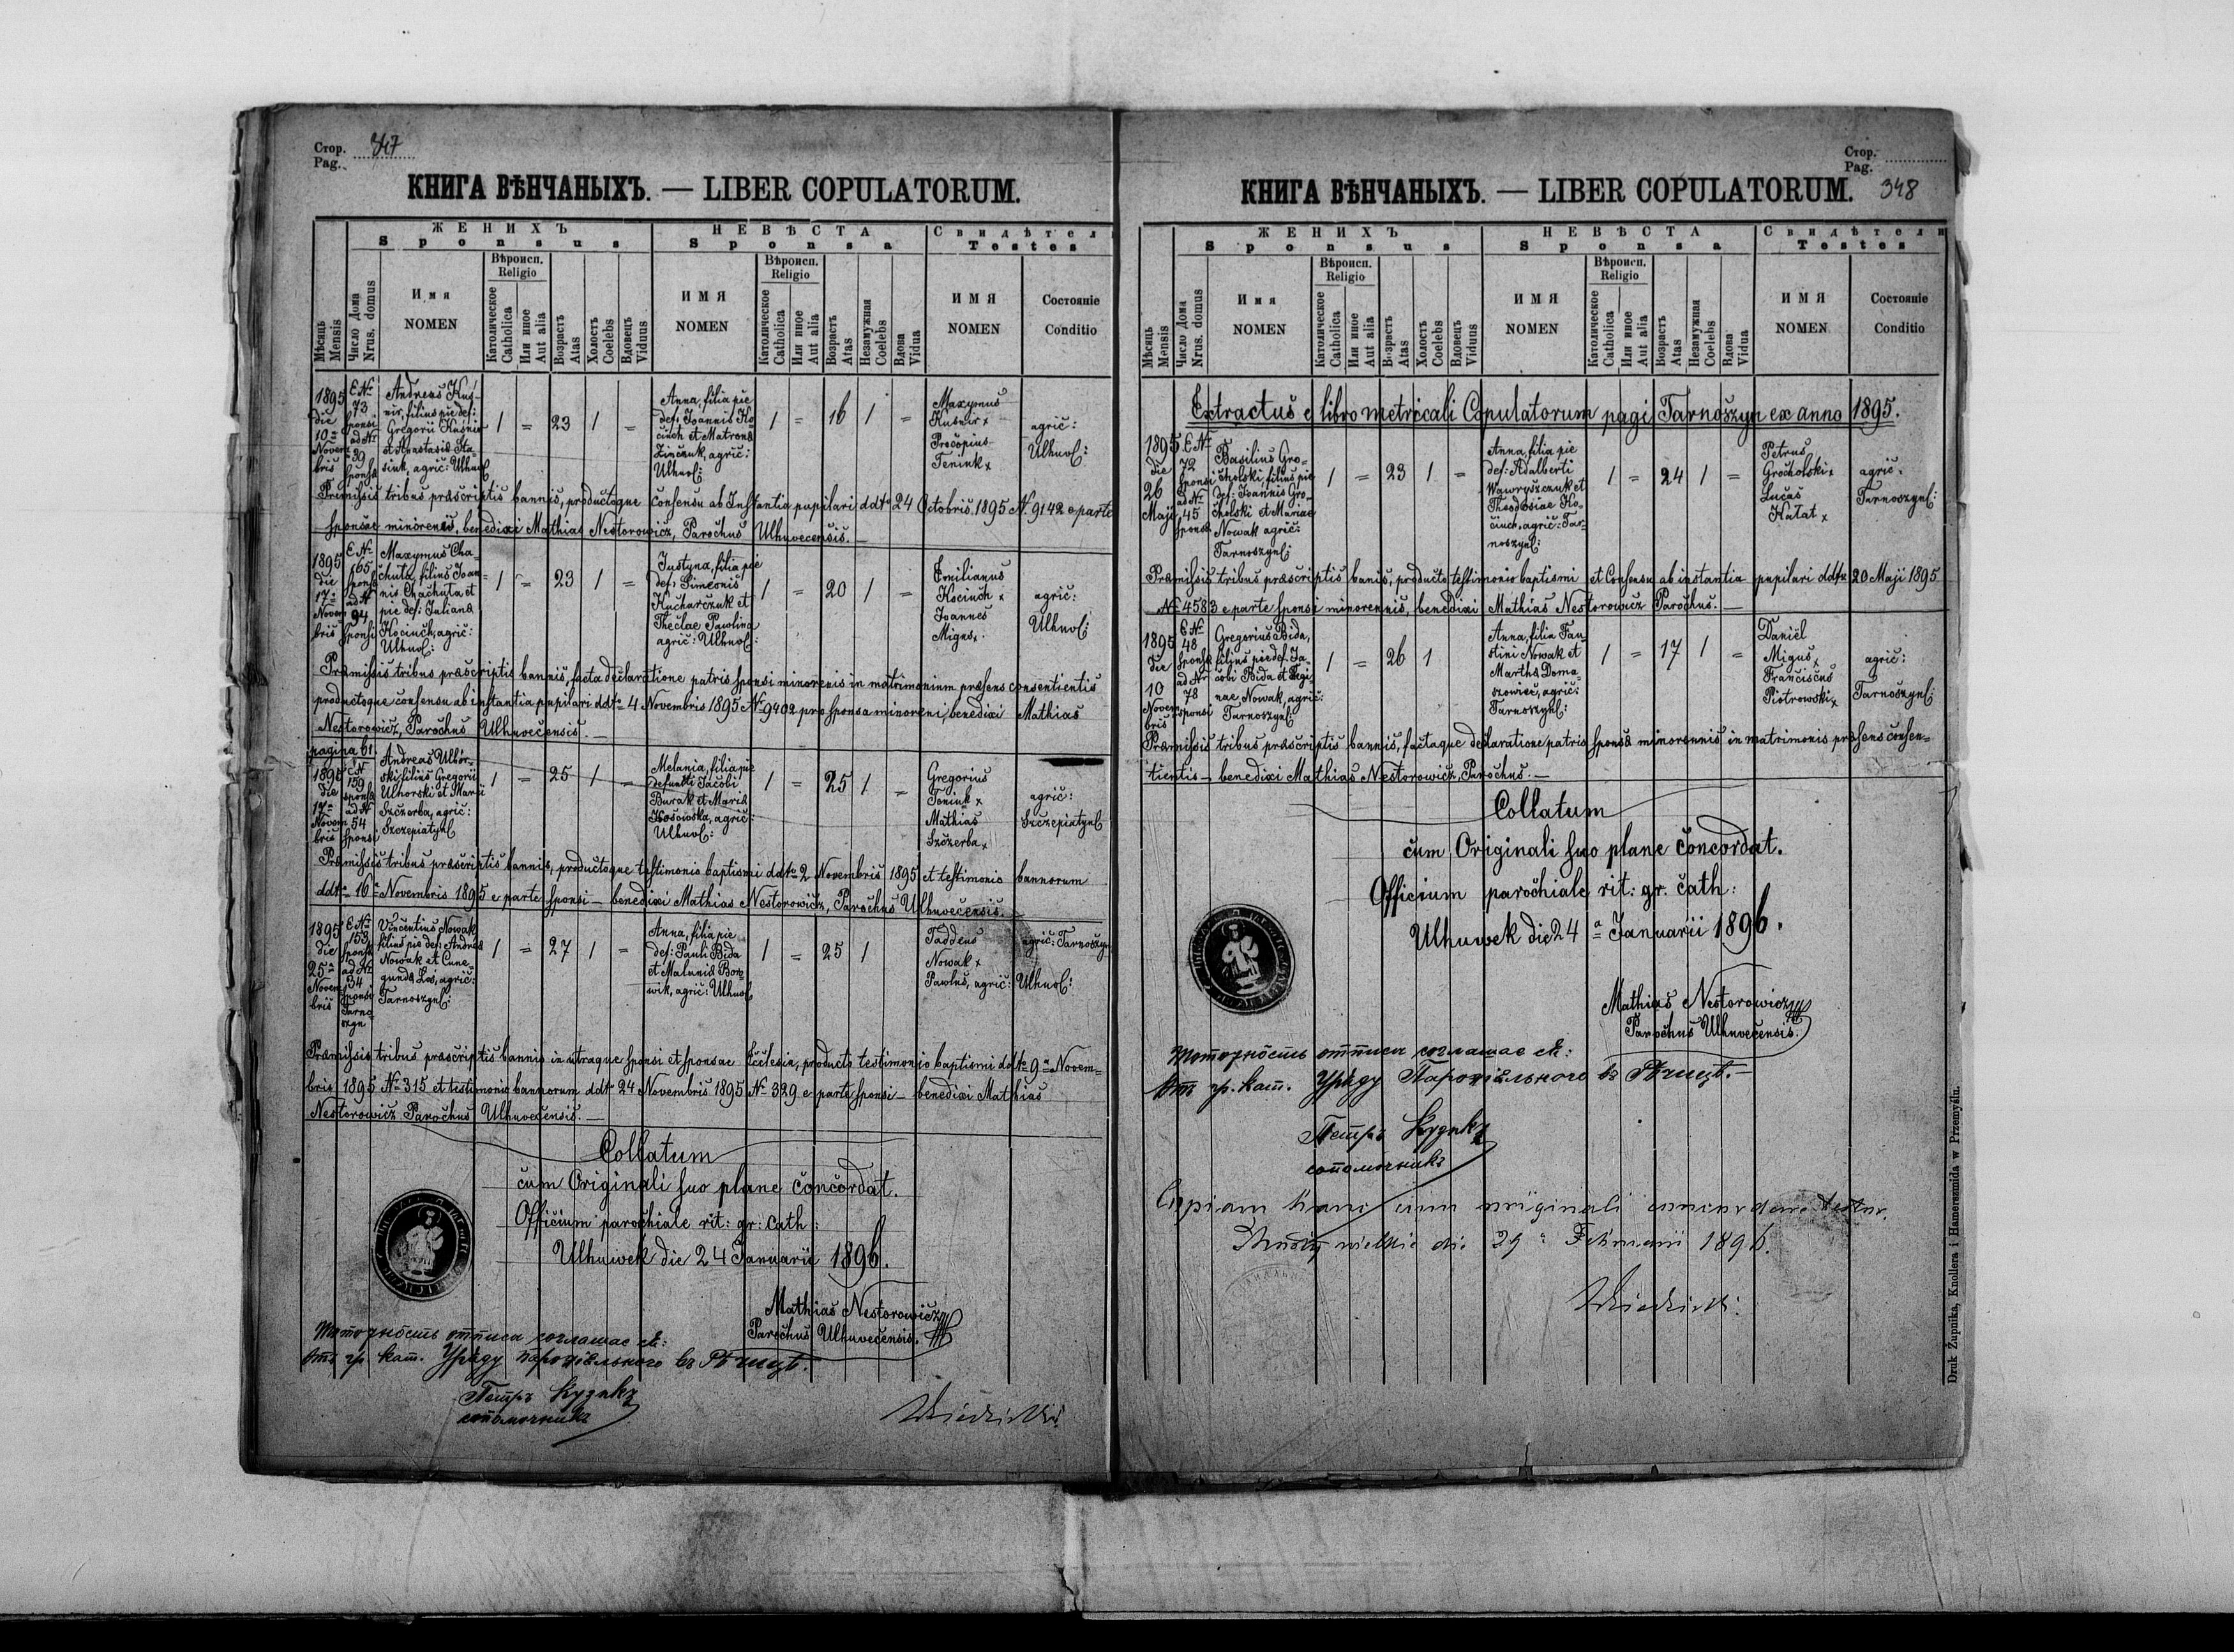 Стор.
Pag. 347
КНИГА ВѢНЧАНЫХЪ. — LIBER COPULATORUM.
ЖЕНИХЪ
Sponsus
НЕВѢСТА
Sponsa
Свидѣтели
Testes
Мѣсяць
Mensis
Число Дома
Nrus. domus
Имя
NOMEN
Вѣроисп.
Religio
Католическое
Catholica
Или иное
Aut alia
Возрастъ
Atas
Холостъ
Coelebs
Вдовецъ
Viduus
ИМЯ
NOMEN
Вѣроисп.
Religio
Католическое
Catholica
Или иное
Aut alia
Возрастъ
Atas
Незамужная
Coelebs
Вдова
Vidua
ИМЯ
NOMEN
Состояніе
Conditio
1895
die
10a
Novem
bris
E No
73
sponsi
ad No
39
sponsæ
Andreas Kuś-
nir, filius pie def:
Gregorii Kuśnir
et Anastasiæ Sta-
siuk, agric: Ulhuv:
1 = 23 1 =
Anna, filia pie
def: Joannis Ko-
ciuch et Matronæ
Zinczuk, agric:
Ulhuv:
1 = 16 1 =
Maxymus
Kusnir x
Procopius
Teniuk x
agric:
Ulhuv:
Præmissis tribus præscriptis bannis, productoque consensu ab Instantia pupilari ddto 24 Octobris 1895 No 9142 e parte
sponsae minorenis, benedixi Mathias Nestorowicz, Parochus Ulhuvecensis. —
1895
die
17a
Novem
bris
E No
165
sponsæ
ad No
94
sponsi
Maxymus Cha-
chuta, filius Joan-
nis Chachuta et
pie def: Julianæ
Kociuch, agric:
Ulhuv:
1 = 23 1 =
Justyna, filia pie
def: Simeonis
Kucharczuk et
Theclae Pawlina
agric: Ulhuv:
1 = 20 1 =
Emilianus
Kociuch x
Joannes
Migus x
agric:
Ulhuv:
Præmissis tribus præscriptis bannis, facta declaratione patris sponsi minorenis in matrimonium præsens consentientis
productoque consensu ab instantia pupilari ddto 4 Novembris 1895 No 9402 pro sponsa minoreni, benedixi Mathias
Nestorowicz, Parochus Ulhuvecensis. —
pagina 61
1895
die
17a
Novem
bris
E No
159
sponsæ
ad No
54
sponsi
Andreas Ulhor-
ski, filius Gregorii
Ulhorski et Mariæ
Szczerba, agric:
Szczepiatyn:
1 = 25 1 =
Melania, filia pie
defuncti Jacobi
Burak et Mariæ
Kościowska, agric:
Ulhuv:
1 = 25 1 =
Gregorius
Teniuk x
Mathias
Szczerba x
agric:
Szczepiatyn:
Præmissis tribus præscriptis bannis, productoque testimonio baptismi ddto 2 Novembris 1895 et testimonio bannorum
ddto 16 Novembris 1895 e parte sponsi — benedixi Mathias Nestorowicz, Parochus Ulhuvecensis. —
1895
die
25a
Novem
bris
E No
153
sponsæ
ad No
34
sponsi
Tarno-
szyn
Vincentius Nowak
filius pie def: Andreæ
Nowak et Cune-
gundæ Łoś, agric:
Tarnoszyn:
1 = 27 1 =
Anna, filia pie
def: Pauli Bida
et Malaniæ Boro-
wik, agric: Ulhuv:
1 = 25 1
Taddeus
Nowak x
Pawlus, agric: Ulhuv:
agric: Tarnoszyn
Præmissis tribus præscriptis bannis in utraque sponsi et sponsae Ecclesia, producto testimonio baptismi ddto 9a Novem-
bris 1895 No 315 et testimonio bannorum ddto 24 Novembris 1895 No 329 e parte sponsi — benedixi Mathias
Nestorowicz Parochus Ulhuvecensis. —
Collatum
cum Originali suo plane concordat.
Officium parochiale rit: gr: cath:
Ulhuwek die 24 Januarii 1896.
Mathias Nestorowicz
Parochus Ulhuvecensis.
Тотожность отписа соглашає ся:
Отъ гр. кат. Уряду Парохіяльного въ
Петръ Кузыкъ
сотомочникъ
Стор.
Pag. 348
КНИГА ВѢНЧАНЫХЪ. — LIBER COPULATORUM.
ЖЕНИХЪ
Sponsus
НЕВѢСТА
Sponsa
Свидѣтели
Testes
Мѣсяць
Mensis
Число Дома
Nrus. domus
Имя
NOMEN
Вѣроисп.
Religio
Католическое
Catholica
Или иное
Aut alia
Возрастъ
Atas
Холостъ
Coelebs
Вдовецъ
Viduus
ИМЯ
NOMEN
Вѣроисп.
Religio
Католическое
Catholica
Или иное
Aut alia
Возрастъ
Atas
Незамужная
Coelebs
Вдова
Vidua
ИМЯ
NOMEN
Состояніе
Conditio
Extractus e libro metricali Copulatorum pagi Tarnoszyn ex anno 1895.
1895
die
26
Maji
E No
72
sponsi
ad No
45
sponsæ
Basilius Gro-
cholski, filius pie
def: Joannis Gro-
cholski et Mariae
Nowak agric:
Tarnoszyn:
1 = 23 1 =
Anna, filia pie
def: Adalberti
Wawryszczuk et
Theodosiae Ko-
ciuch, agric: Tar-
noszyn:
1 = 24 1 =
Petrus
Grocholski x
Lucas
Kałat x
agric:
Tarnoszyn:
Præmissis tribus præscriptis banis, producto testimonio baptismi et Consensu ab instantia pupilari ddto 20 Maji 1895
No 4583 e parte sponsi minorennis, benedixi Mathias Nestorowicz Parochus. —
1895
die
10
Novem
bris
E No
48
sponsæ
ad Nr
78
sponsi
Gregorius Bida,
filius pie def. Ja-
cobi Bida et Regi-
nae Nowak, agric:
Tarnoszyn:
1 = 26 1
Anna, filia Fau-
stini Nowak et
Marthæ Doma-
szowiec, agric:
Tarnoszyn:
1 = 17 1 =
Daniel
Migus x
Franciscus
Piotrowski x
agric:
Tarnoszyn:
Præmissis tribus præscriptis bannis, factaque declaratione patris sponsæ minorennis in matrimonio præsens consen-
tientis — benedixi Mathias Nestorowicz, Parochus. —
Collatum
cum Originali suo plane concordat.
Officium parochiale rit: gr. cath:
Ulhuwek die 24a Januarii 1896.
Mathias Nestorowicz
Parochus Ulhuvecensis.
Тотожность отписа соглашає ся:
Отъ гр. кат. Уряду Парохіяльного въ
Петръ Кузыкъ
сотомочникъ
Copiam hanc cum originali concordare testor.
die 29a Februarii 1896.
Druk Żupnika, Knollera i Hamerszmida w Przemyślu.